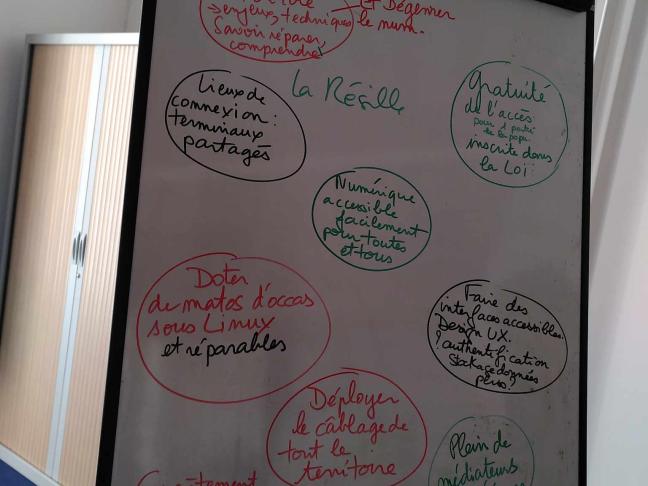 enjeux, techniques
Savoir réparer,
comprendre
Dégenrer
le num.
La Résille
Lieux de
connexion :
terminaux
partagés
Gratuité
de l'accès
inscrite dans
la Loi
Numérique
accessible
facilement
pour toutes
et tous
Doter
de matos d'occas
sous Linux
et réparables
Faire des
interfaces accessibles.
Design UX.
authentification
stockage données
perso ?
Déployer
le câblage de
tout le
territoire
Plein de
médiateurs